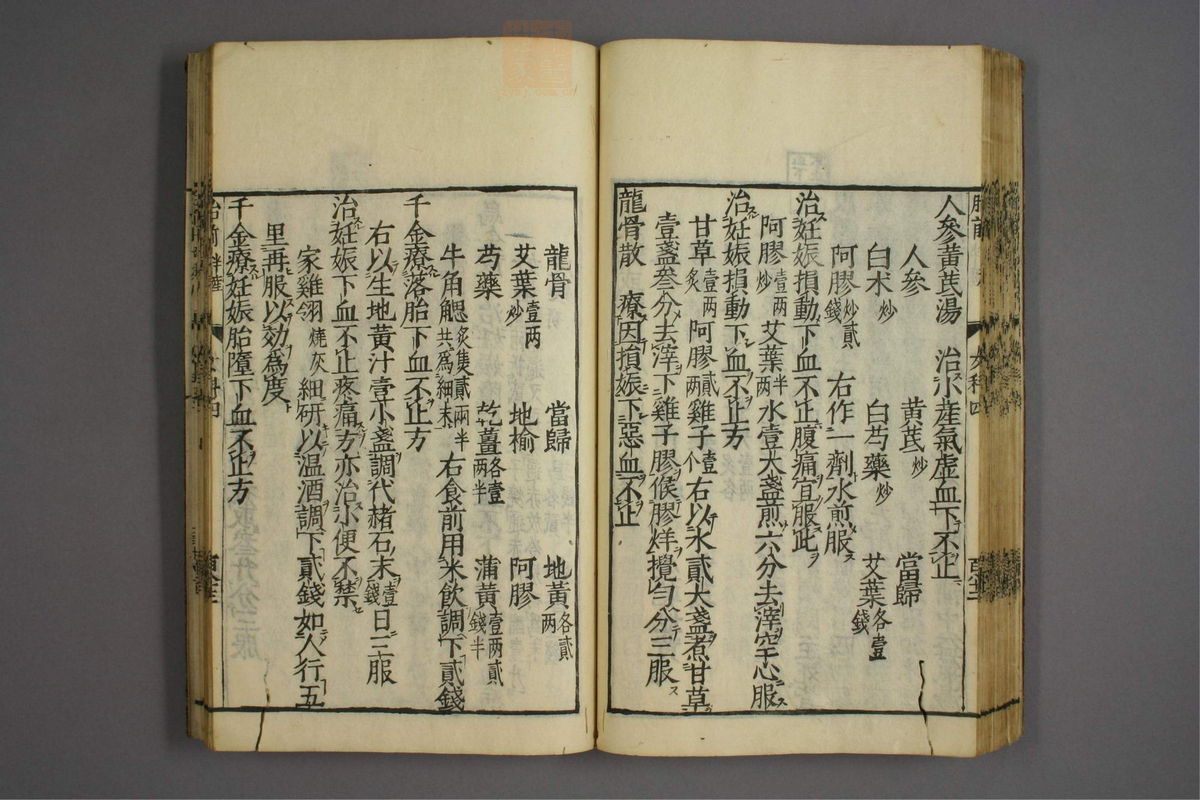 人參黃芪湯　治小產氣虛血下不止
人參　黃芪炒　當歸
白朮炒　白芍藥炒　艾葉各壹錢
阿膠炒貳錢　右作一劑水煎服
治妊娠損動下血不止腹痛宜服此
阿膠壹兩炒　艾葉半兩　水壹大盞煎六分去滓空心服
治妊娠損動下血不止方
甘草壹兩炙　阿膠貳兩　雞子壹个　右以水貳大盞煮甘草
壹盞叁分去滓下雞子膠候膠烊攪勻分三服
龍骨散　療因損娠下惡血不止
龍骨　當歸　地黃各貳兩
艾葉壹兩炒　地榆　阿膠
芍藥　乾薑各壹兩半　蒲黃壹兩貳錢半
牛角䚡炙隻貳兩半共為細末　右食前用米飲調下貳錢
千金療落胎下血不止方
右以生地黃汁壹小盞調代赭石末壹錢日三服
治妊娠下血不止疼痛方亦治小便不禁
家雞翎燒灰　細研以温酒調下貳錢如人行五
里再服以効為度
千金療妊娠胎墮下血不止方